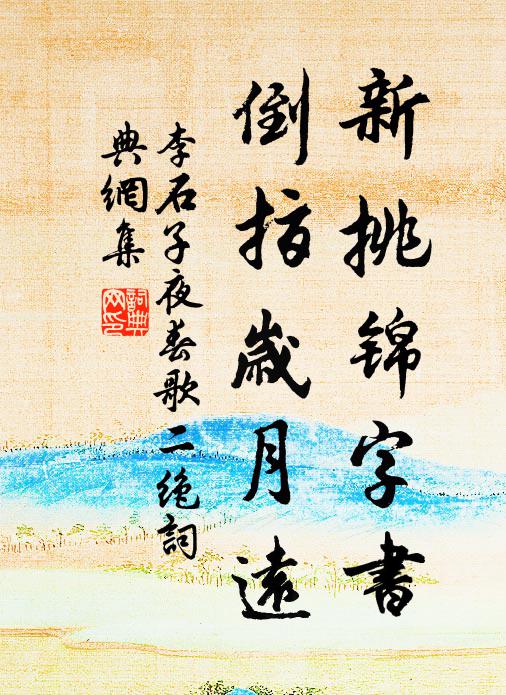 新挑锦字書
倒指歲月遠
李石子夜春歌二絶詞
典網集
詞典网印